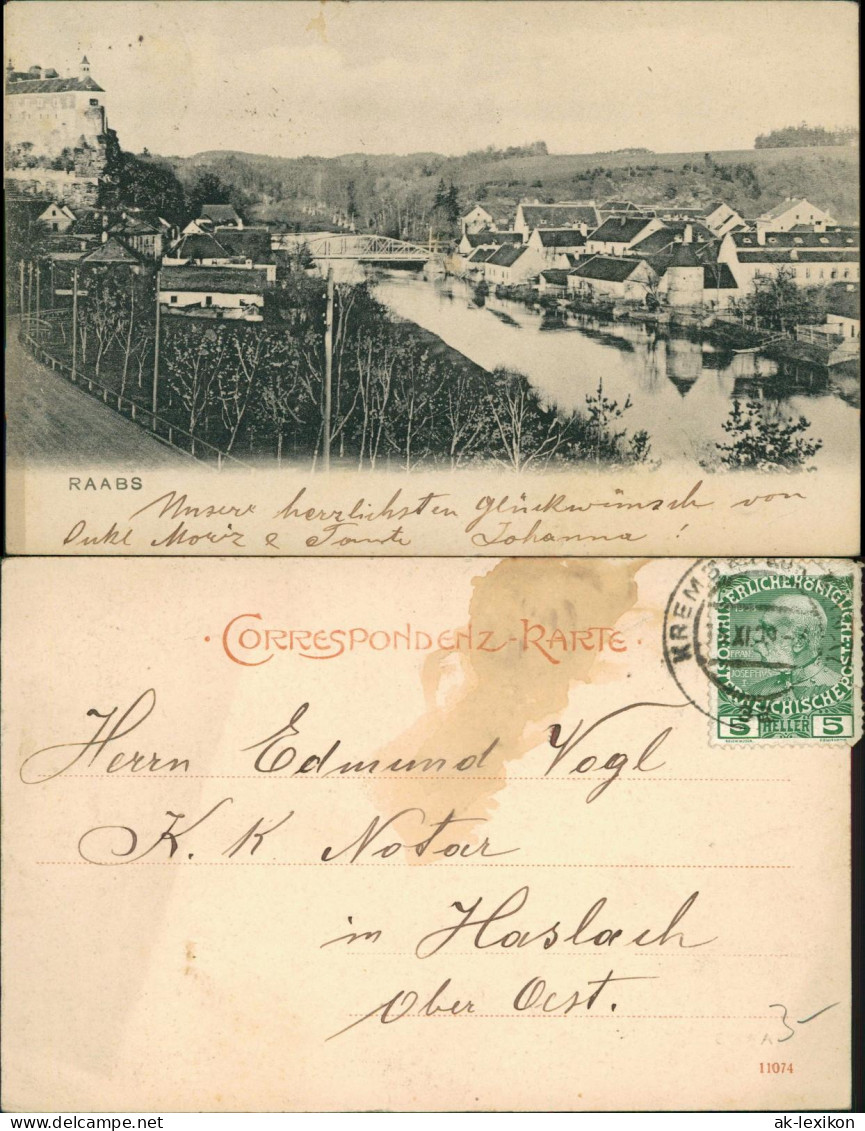 RAABS
Unsere herzlichsten Glückwünsch von
Onkl Moriz & Tante Johanna!
CORRESPONDENZ-KARTE
KREMS
XI
KAISERLICHE KÖNIGLICHE
ÖSTERREICHISCHE POST
FRANZ
JOSEPH
I
5 HELLER 5
Herrn Edmund Vogl
K. K Notar
in Haslach
Ober Oest.
11074
ak-lexikon